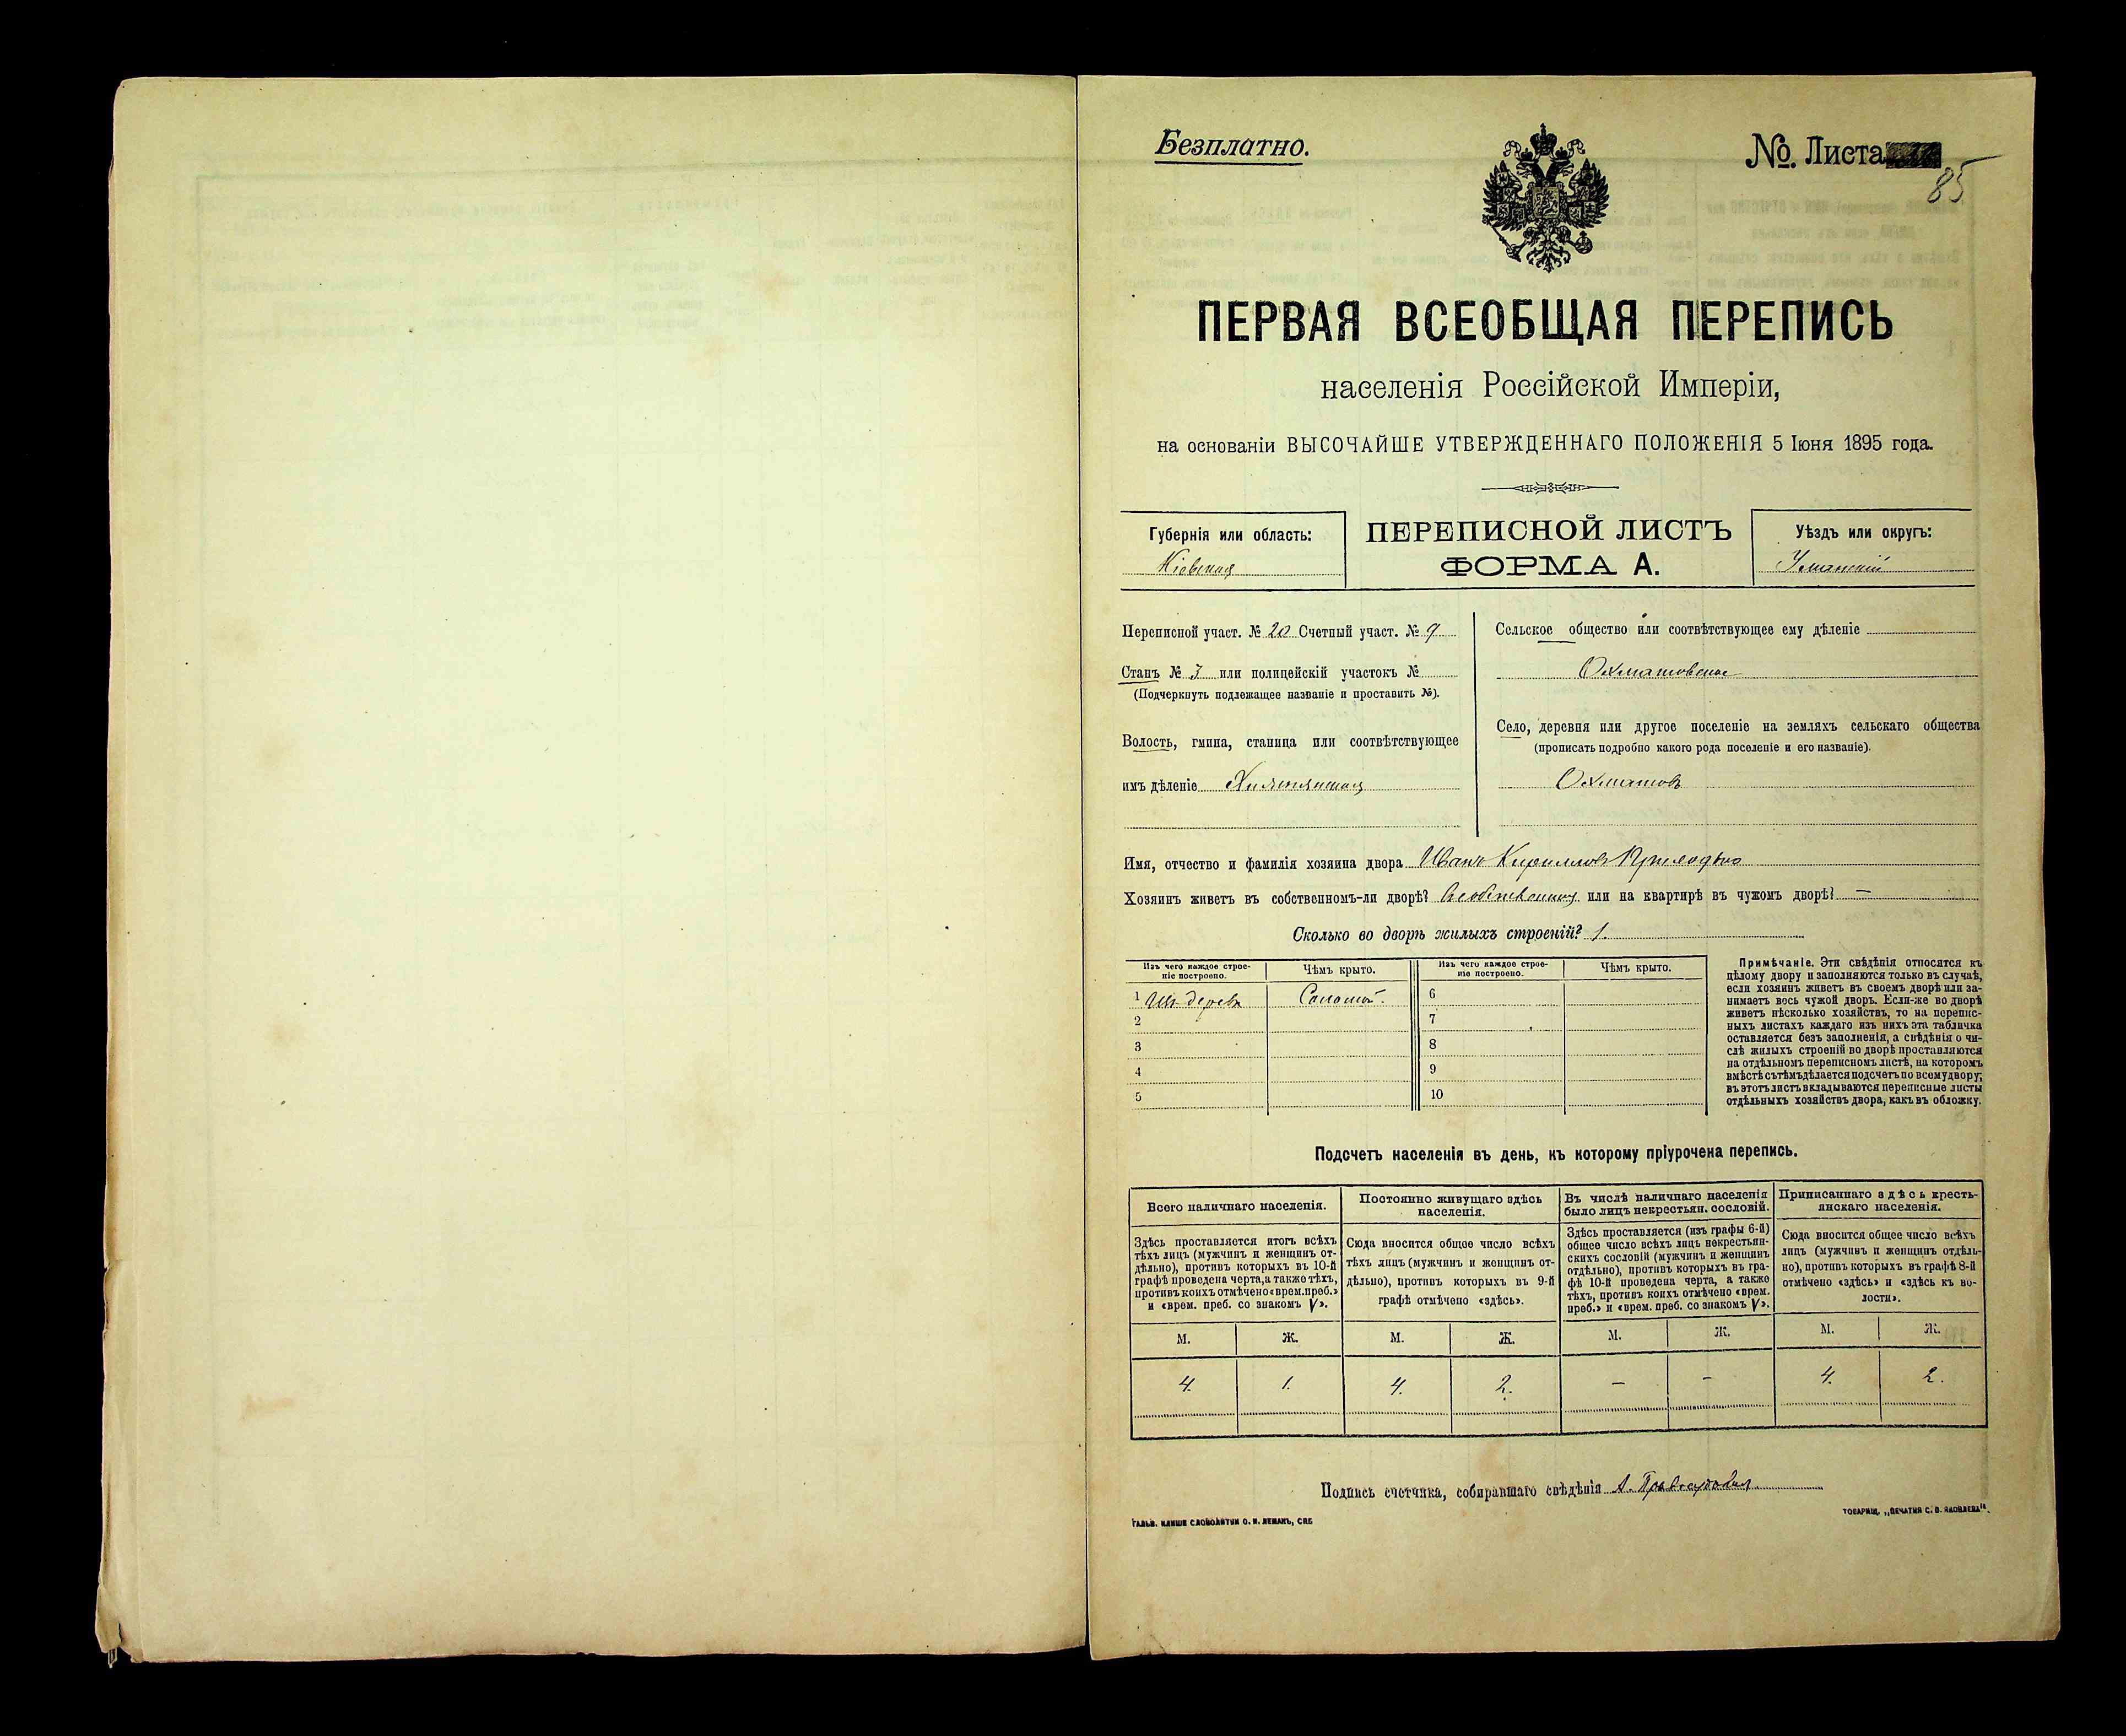 Безплатно.
№. Листа
85
ПЕРВАЯ ВСЕОБЩАЯ ПЕРЕПИСЬ
населенія Россійской Имперіи,
на основаніи ВЫСОЧАЙШЕ УТВЕРЖДЕННАГО ПОЛОЖЕНІЯ 5 Іюня 1895 года.
Губернія или область:
Кіевская
ПЕРЕПИСНОЙ ЛИСТЪ
ФОРМА А.
Уѣздъ или округъ:
Уманскій
Переписной участ. № 20 Счетный участ. № 9
Станъ № 3 или полицейскій участокъ №
(Подчеркнуть подлежащее названіе и проставить №).
Волость, гмина, станица или соотвѣтствующее
имъ дѣленіе
Сельское общество или соотвѣтствующее ему дѣленіе
Охматовское
Село, деревня или другое поселеніе на земляхъ сельскаго общества
(прописать подробно какого рода поселеніе и его названіе).
Охматовъ
Имя, отчество и фамилія хозяина двора Иванъ Кирилловъ
Хозяинъ живетъ въ собственномъ-ли дворѣ? или на квартирѣ въ чужомъ дворѣ? —
Сколько во дворѣ жилыхъ строеній? 1.
Изъ чего каждое строе-
ніе построено.
Чѣмъ крыто.
Изъ чего каждое строе-
ніе построено.
Чѣмъ крыто.
1 Изъ дерева Соломой. 6
2 7
3 8
4 9
5 10
Примѣчаніе. Эти свѣдѣнія относятся къ
цѣлому двору и заполняются только въ случаѣ,
если хозяинъ живетъ въ своемъ дворѣ или за-
нимаетъ весь чужой дворъ. Если-же во дворѣ
живетъ нѣсколько хозяйствъ, то на перепис-
ныхъ листахъ каждаго изъ нихъ эта табличка
оставляется безъ заполненія, а свѣдѣнія о чи-
слѣ жилыхъ строеній во дворѣ проставляются
на отдѣльномъ переписномъ листѣ, на которомъ
вмѣстѣ съ тѣмъ дѣлается подсчетъ по всему двору;
въ этотъ листъ вкладываются переписные листы
отдѣльныхъ хозяйствъ двора, какъ въ обложку.
Подсчетъ населенія въ день, къ которому пріурочена перепись.
Всего наличнаго населенія.
Здѣсь проставляется итогъ всѣхъ
тѣхъ лицъ (мужчинъ и женщинъ от-
дѣльно), противъ которыхъ въ 10-й
графѣ проведена черта, а также тѣхъ,
противъ коихъ отмѣчено «врем. преб.»
и «врем. преб. со знакомъ V».
Постоянно живущаго здѣсь
населенія.
Сюда вносится общее число всѣхъ
тѣхъ лицъ (мужчинъ и женщинъ от-
дѣльно), противъ которыхъ въ 9-й
графѣ отмѣчено «здѣсь».
Въ числѣ наличнаго населенія
было лицъ некрестьян. сословій.
Здѣсь проставляется (изъ графы 6-й)
общее число всѣхъ лицъ некрестьян-
скихъ сословій (мужчинъ и женщинъ
отдѣльно), противъ которыхъ въ гра-
фѣ 10-й проведена черта, а также
тѣхъ, противъ коихъ отмѣчено «врем.
преб.» и «врем. преб. со знакомъ V».
Приписаннаго здѣсь кресть-
янскаго населенія.
Сюда вносится общее число всѣхъ
лицъ (мужчинъ и женщинъ отдѣль-
но), противъ которыхъ въ графѣ 8-й
отмѣчено «здѣсь» и «здѣсь къ во-
лости».
М. Ж. М. Ж. М. Ж. М. Ж.
4. 1. 4. 2. — — 4. 2.
Подпись счетчика, собиравшаго свѣдѣнія А.
ГАЛЬВ. КЛИШЕ СЛОВОЛИТНИ О. И. ЛЕМАНЪ, СПБ.
ТОВАРИЩ. „ПЕЧАТНЯ С. П. ЯКОВЛЕВА".